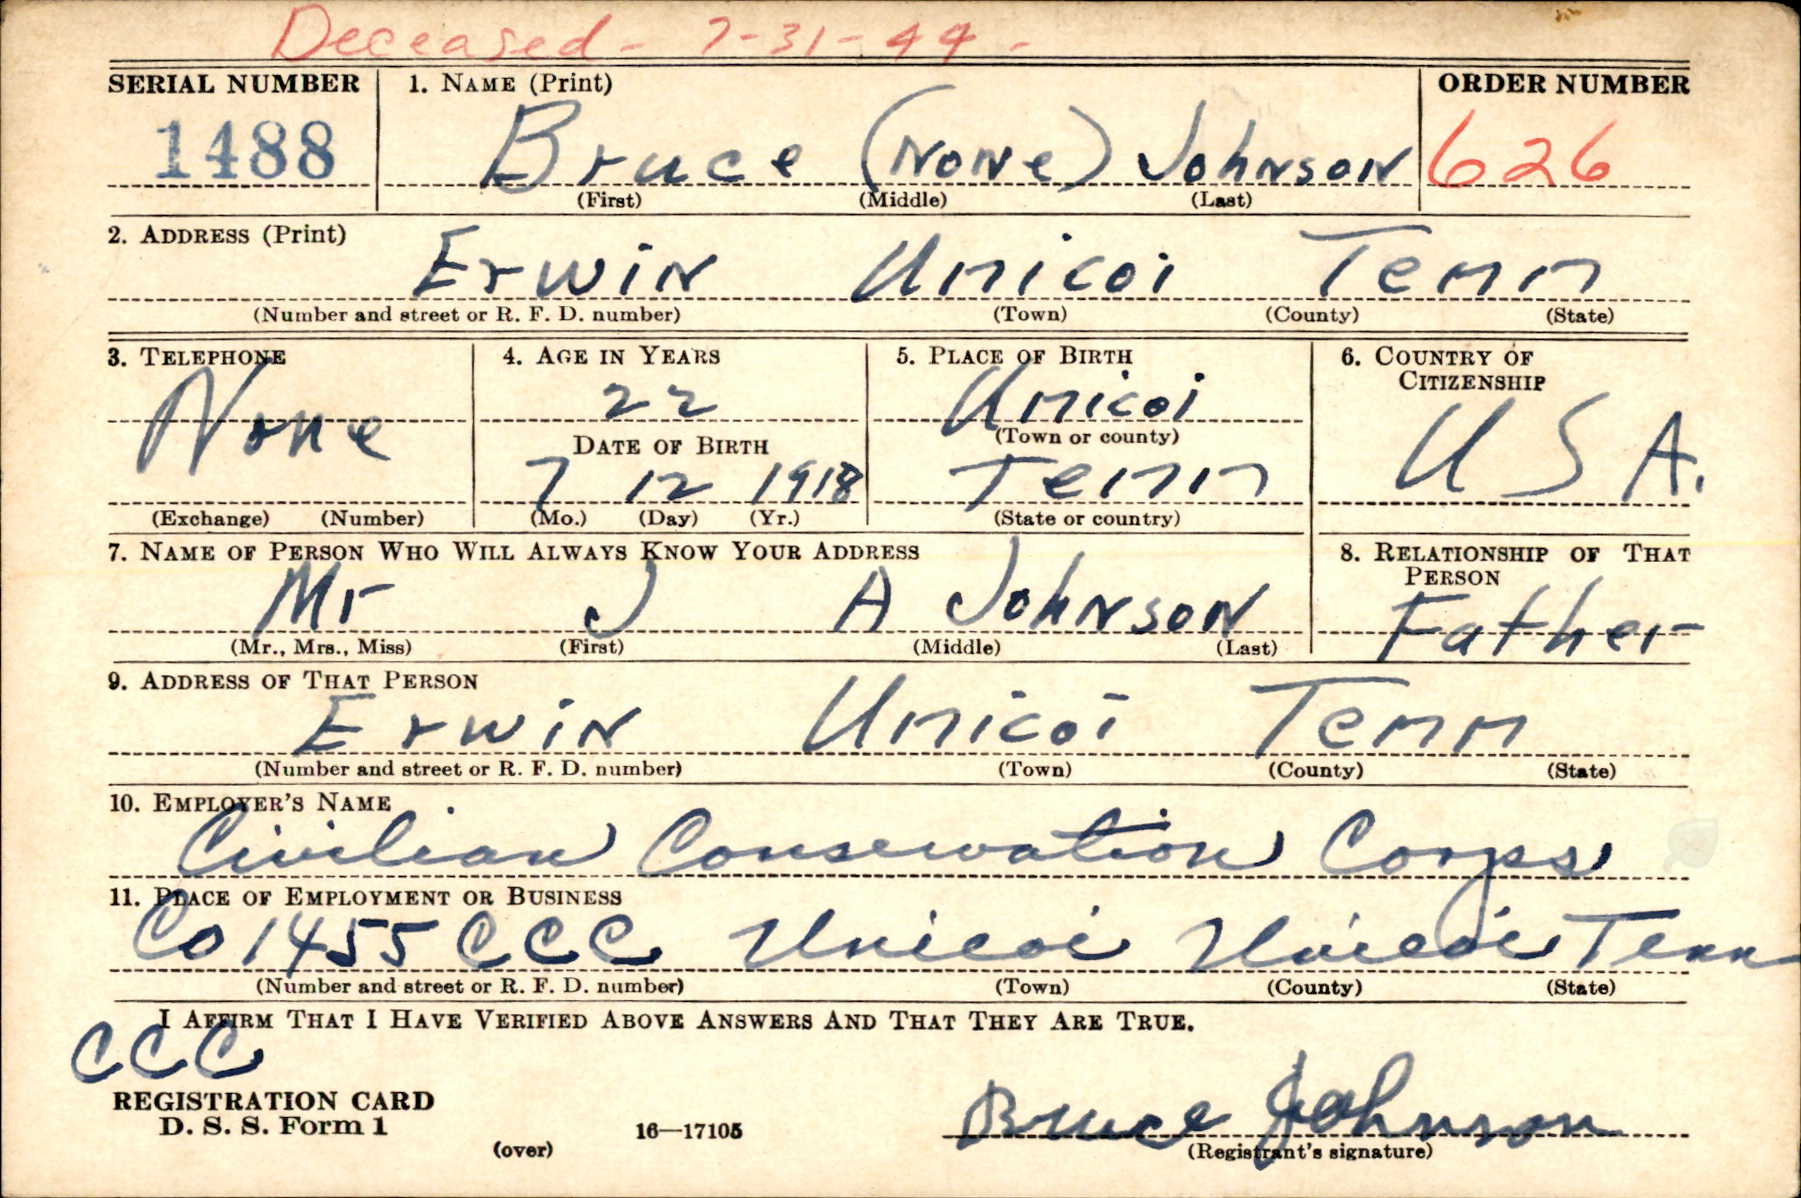 Deceased - 7-31-44 -
SERIAL NUMBER 1. NAME (Print) ORDER NUMBER
1488 Bruce (NoNe) JohNsoN 626
(First) (Middle) (Last)
2. ADDRESS (Print)
ErwiN Unicoi Tenn
(Number and street or R. F. D. number) (Town) (County) (State)
3. TELEPHONE 4. AGE IN YEARS 5. PLACE OF BIRTH 6. COUNTRY OF
CITIZENSHIP
None 22 Unicoi U S A.
(Town or county)
DATE OF BIRTH
7 12 1918 Tenn
(Exchange) (Number) (Mo.) (Day) (Yr.) (State or country)
7. NAME OF PERSON WHO WILL ALWAYS KNOW YOUR ADDRESS 8. RELATIONSHIP OF THAT
PERSON
Mr J A JohNsoN Father
(Mr., Mrs., Miss) (First) (Middle) (Last)
9. ADDRESS OF THAT PERSON
ErwiN Unicoi Tenn
(Number and street or R. F. D. number) (Town) (County) (State)
10. EMPLOYER'S NAME
Civilian Conservation Corps
11. PLACE OF EMPLOYMENT OR BUSINESS
Co 1455 CCC Unicoi Unicoi Tenn
(Number and street or R. F. D. number) (Town) (County) (State)
I AFFIRM THAT I HAVE VERIFIED ABOVE ANSWERS AND THAT THEY ARE TRUE.
CCC
REGISTRATION CARD
D. S. S. Form 1
(over) 16—17105
Bruce Johnson
(Registrant's signature)